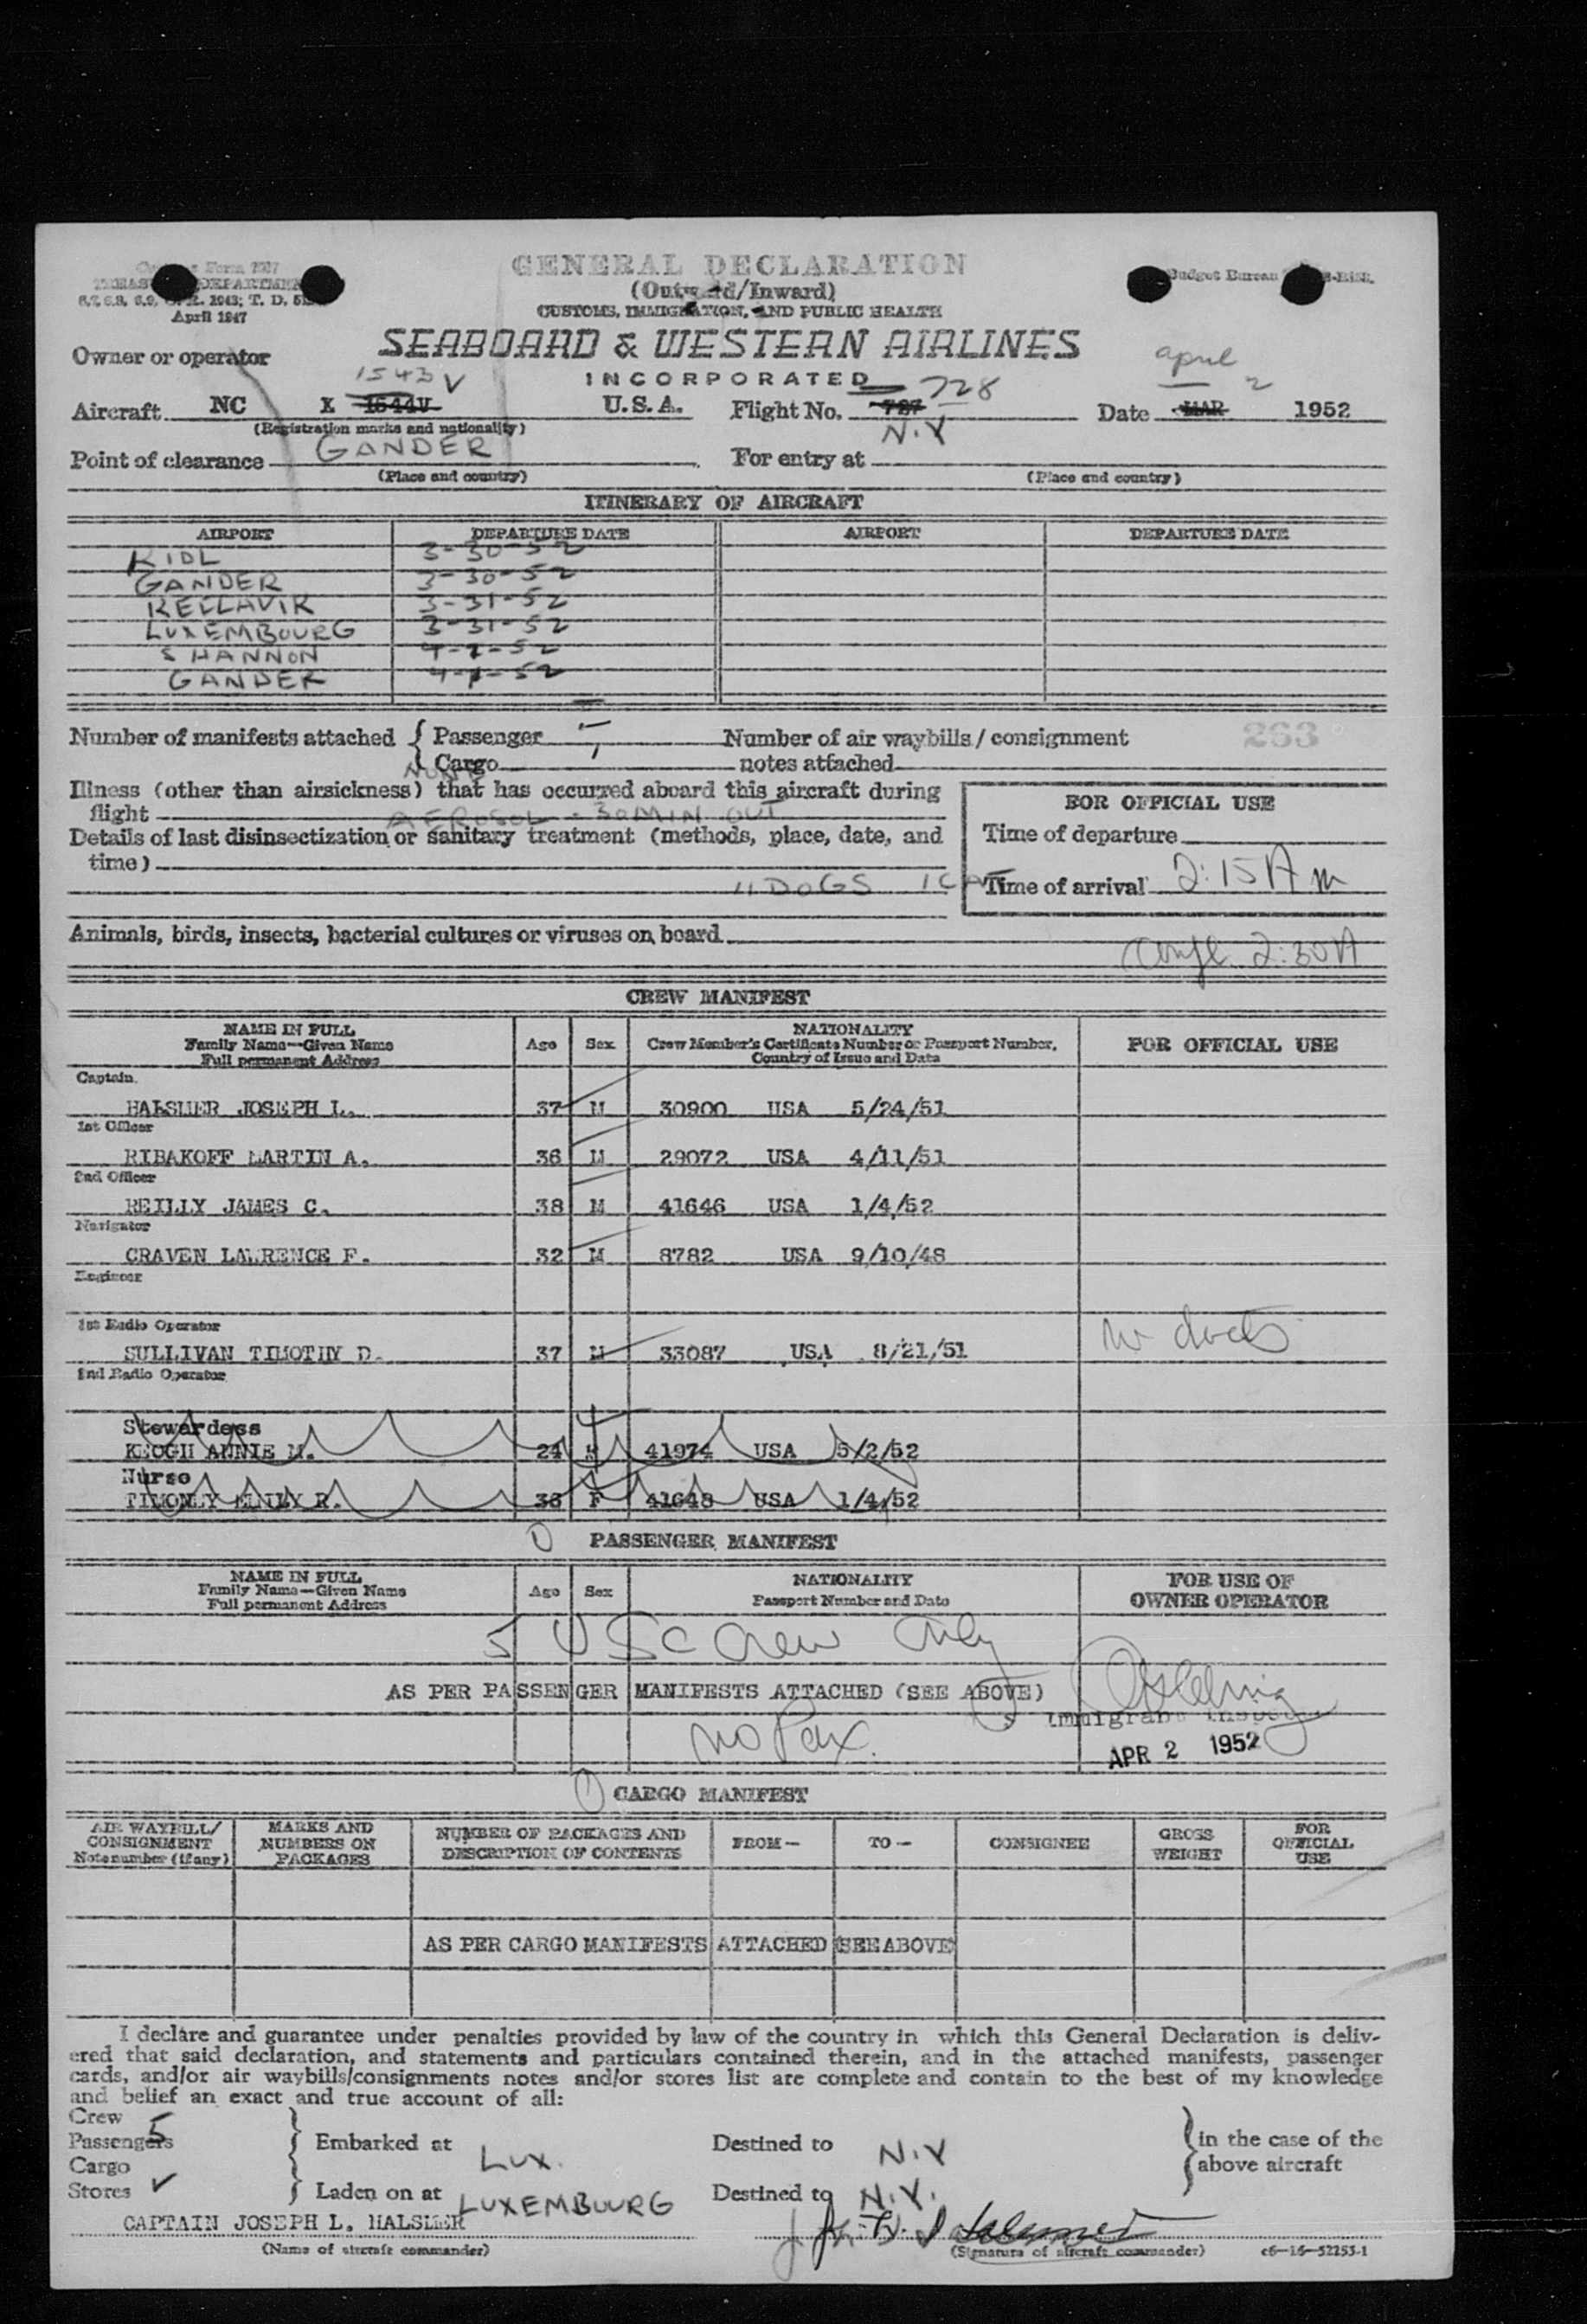 Form 7507
TREASURY DEPARTMENT
April 1947
Budget Bureau
GENERAL DECLARATION
(Outward/Inward)
CUSTOMS, IMMIGRATION, AND PUBLIC HEALTH
SEABOARD & WESTERN AIRLINES
INCORPORATED
Owner or operator
1543 V
728
april 2
Aircraft NC X 1544V U.S.A. Flight No. 727 Date MAR 1952
(Registration marks and nationality)
Point of clearance GANDER For entry at N.Y
(Place and country) (Place and country)
ITINERARY OF AIRCRAFT
AIRPORT DEPARTURE DATE AIRPORT DEPARTURE DATE
KIDL 3-30-52
GANDER 3-30-52
KEFLAVIK 3-31-52
LUXEMBOURG 3-31-52
SHANNON 4-1-52
GANDER 4-1-52
263
Number of manifests attached { Passenger Number of air waybills / consignment
{ Cargo notes attached
NONE
Illness (other than airsickness) that has occurred aboard this aircraft during
flight
AEROSOL - 30 MIN OUT
Details of last disinsectization or sanitary treatment (methods, place, date, and
time)
FOR OFFICIAL USE
Time of departure
Time of arrival 2:15 A m
11 DOGS 1 CAT
Animals, birds, insects, bacterial cultures or viruses on board
2:30 A
CREW MANIFEST
NAME IN FULL
Family Name—Given Name
Full permanent Address
Age Sex
NATIONALITY
Crew Member's Certificate Number or Passport Number,
Country of Issue and Date
FOR OFFICIAL USE
Captain
HALSMER JOSEPH L. 37 M 30900 USA 5/24/51
1st Officer
RIBAKOFF MARTIN A. 36 M 29072 USA 4/11/51
2nd Officer
REILLY JAMES C. 38 M 41646 USA 1/4/52
Navigator
CRAVEN LAWRENCE F. 32 M 8782 USA 9/10/48
Engineer
1st Radio Operator
SULLIVAN TIMOTHY D. 37 M 33087 USA 8/21/51
2nd Radio Operator
Stewardess
KEOGH ANNIE M. 24 41974 USA 5/2/52
Nurse
TIMONEY EMILY R. 36 F 41648 USA 1/4/52
PASSENGER MANIFEST
NAME IN FULL
Family Name—Given Name
Full permanent Address
Age Sex
NATIONALITY
Passport Number and Date
FOR USE OF
OWNER OPERATOR
5 USC Crew Only
AS PER PASSENGER MANIFESTS ATTACHED (SEE ABOVE)
Immigrant Inspector
no Pax.
APR 2 1952
CARGO MANIFEST
AIR WAYBILL/
CONSIGNMENT
Note number (if any)
MARKS AND
NUMBERS ON
PACKAGES
NUMBER OF PACKAGES AND
DESCRIPTION OF CONTENTS
FROM— TO— CONSIGNEE
GROSS
WEIGHT
FOR
OFFICIAL
USE
AS PER CARGO MANIFESTS ATTACHED (SEE ABOVE)
I declare and guarantee under penalties provided by law of the country in which this General Declaration is deliv-
ered that said declaration, and statements and particulars contained therein, and in the attached manifests, passenger
cards, and/or air waybills/consignments notes and/or stores list are complete and contain to the best of my knowledge
and belief an exact and true account of all:
Crew 5
Passengers
Cargo
Stores ✓
Embarked at LUX. Destined to N.Y
Laden on at LUXEMBOURG Destined to N.Y.
in the case of the
above aircraft
CAPTAIN JOSEPH L. HALSMER
(Name of aircraft commander) (Signature of aircraft commander) c6-16-52253-1